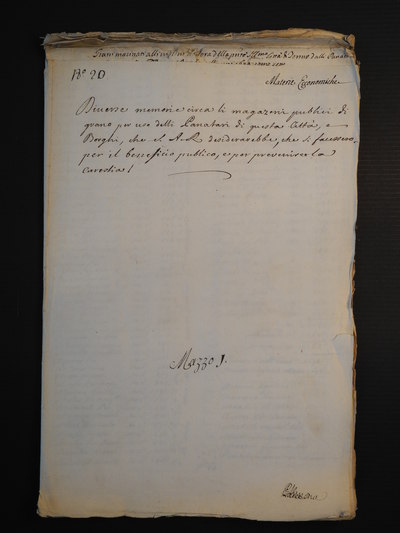 Grani macinati alli
N.º 20
Materie Economiche
Diverse memorie circa li magazeni publici di
grano per uso delli Panatari di questa Città, e
Borghi, che S. A. R. desiderarebbe, che si facessero,
per il beneficio publico, e per prevenire la
carestia /
Mazzo J.